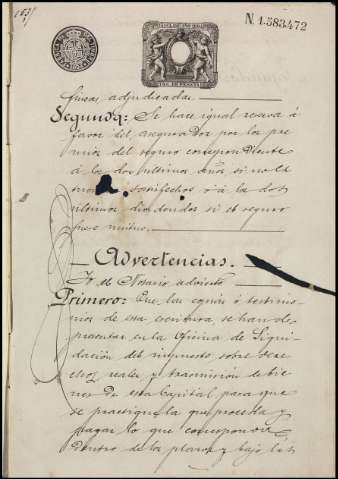 N. 1.583.472
fincas adjudicadas.
Segunda: Se hace igual reserva á
favor del asegurador por los pre
mios del seguro correspondiente
á los dos últimos años si no es
satisfechos ó á los dos
últimos dividendos si el seguro
fuese mútuo.
Advertencias.
Yo el Notario advierto
Primero: Que las copias ó testimo
nios de esta escritura, se han de
presentar en la Oficina de Liqui
dación del impuesto sobre dere
chos reales y transmisión de bie
nes de esta Capital para que
se practique la que proceda y
pagar lo que corresponda
dentro de los plazos y bajo las